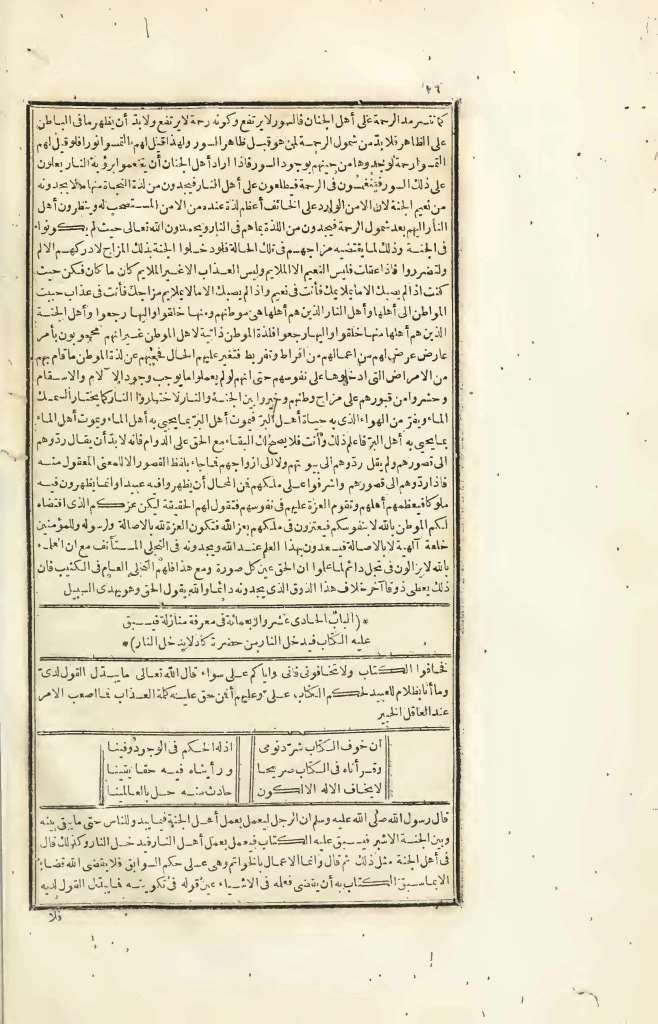 ١٦
كما تسرمد الرحمة على أهل الجنان فالسور لا يرتفع وكونه رحمة لا يرتفع ولا بد أن يظهر ما فى الباطن
على الظاهر فلا بد من شمول الرحمة لمن هو قبل ظاهر السور ولهذا قيل لهم التمسوا نورا فلو قيل لهم
التمسوا رحمة لوجدوها من حينهم بوجود السور فاذا اراد أهل الجنان أن يتنعموا برؤية النار يعلون
على ذلك السور فينغمسون فى الرحمة فيطلعون على أهل النار فيجدون من لذة النجاة منها ما لا يجدونه
من نعيم الجنة لان الامن الوارد على الخائف أعظم لذة عنده من الامن المستصحب له وينظرون أهل
النار اليهم بعد شمول الرحمة فيجدون من اللذة بما هم فى النار ويحمدون الله تعالى حيث لم يكونوا
فى الجنة وذلك لما يقتضيه مزاجهم فى تلك الحالة فلو دخلوا الجنة بذلك المزاج لادركهم الالم
ولتضرروا فاذا عقلت فليس النعيم الا الملايم وليس العذاب الا غير الملايم كان ما كان فكن حيث
كنت اذا لم يصبك الا ما يلايمك فأنت فى نعيم واذا لم يصبك الا ما لا يلايم مزاجك فأنت فى عذاب حببت
المواطن الى أهلها وأهل النار الذين هم أهلها هى موطنهم ومنها خلقوا واليها رجعوا وأهل الجنة
الذين هم أهلها منها خلقوا واليها رجعوا فلذة الموطن ذاتية لاهل الموطن غير انهم محجوبون بأمر
عارض عرض لهم من اعمالهم من افراط وتفريط فتغير عليهم الحال فحجبهم عن لذة الموطن ما قام بهم
من الامراض التى ادخلوها على نفوسهم حتى انهم لو لم يعملوا ما يوجب وجود الآلام والاسقام
وحشروا من قبورهم على مزاج وطنهم وخيروا بين الجنة والنار لاختاروا النار كما يختار السمك
الماء ويفر من الهواء الذى به حياة أهل البر فيموت أهل البر بما يحيى به أهل الماء ويموت أهل الماء
بما يحيى به أهل البر فاعلم ذلك وأنت فلا يصح لك البقاء مع الحق على الدوام فانه لا بد أن يقال ردوهم
الى قصورهم ولم يقل ردوهم الى بيوتهم ولا الى ازواجهم فما جاء بلفظ القصور الا للمعنى المعقول منه
فاذا ردوهم الى قصورهم واشرفوا على ملكهم فمن المحال أن يظهروا فيه عبيدا وانما يظهرون فيه
ملوكا فيعظمهم أهلهم وتقوم العزة عليهم فى نفوسهم فتقول لهم الحقيقة ليكن عزكم الذى اقتضاه
لكم الموطن بالله لا بنفوسكم فيعتزون فى ملكهم بعز الله فتكون العزة لله بالاصالة ولرسوله وللمؤمنين
خلعة آلهية لا بالاصالة فيسعدون بهذا العلم عند الله ويجدونه فى التجلى المستأنف مع ان العلماء
بالله لا يزالون فى تجل دائم لما علموا ان الحق عين كل صورة ومع هذا فلهم التجلى العام فى الكثيب فان
ذلك يعطى ذوقا آخر خلاف هذا الذوق الذى يجدونه دائما والله يقول الحق وهو يهدى السبيل
* (الباب الحادى عشر واربعمائة فى معرفة منازلة فيسبق
عليه الكتاب فيدخل النار من حضرة كاد لا يدخل النار) *
فخافوا الكتاب ولا تخافونى فانى واياكم على سواء قال الله تعالى ما يبدل القول لدى
وما أنا بظلام للعبيد لحكم الكتاب على وعليهم أفمن حق عليه كلمة العذاب فما اصعب الامر
عند العاقل الخبير
ان خوف الكتاب شرد نومى اذ له الحكم فى الوجود وفينا
وقرأناه فى الكتاب صريحا ورأيناه فيه حقا يقينا
لا يخاف الاله الا لكون حادث منه حل بالعالمينا
قال رسول الله صلى الله عليه وسلم ان الرجل ليعمل بعمل أهل الجنة فيما يبدو للناس حتى ما يبقى بينه
وبين الجنة الا شبر فيسبق عليه الكتاب فيعمل بعمل أهل النار فيدخل النار وكذلك قال
فى أهل الجنة مثل ذلك ثم قال وانما الاعمال بالخواتم وهى على حكم السوابق فلا يقضى الله قضاء
الا بما سبق الكتاب به أن يقضى فعلمه فى الاشياء عين قوله فى تكوينه فما يبدل القول لديه
فلا